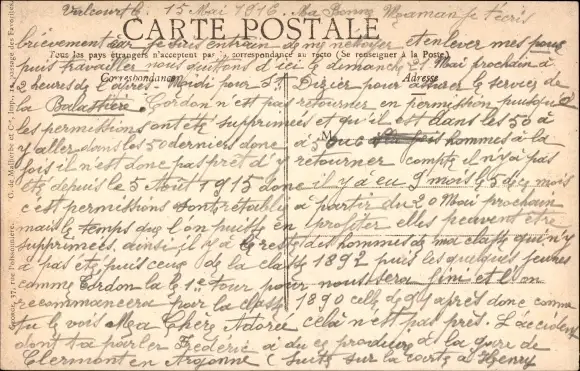 Valcourt le 15 Mai 1916. Ma Bonne Moeman je t'écris
CARTE POSTALE
brièvement car je suis entrain de me netoyer et enlever mes poux
Tous les pays étrangers n'acceptent pas la correspondance au recto (Se renseigner à la Poste)
puis travailler nous quittons d'ici le dimanche Mai prochain à
Correspondance
Adresse
2 heures de l'après-Midi pour St Dizier pour assurer le service de
la Balastière. Cordon n'est pas retourner en permission puisque
les permissions ont été supprimées et qu'il est dans les 50 à
M
y aller dans les 50 derniers donc à 3 ou 4 hommes à la
fois il n'est donc pas prêt d'y retourner compte il n'y a pas
été depuis le 5 Août 1915 donc il y a eu 9 mois le 5 de ce mois
c'est permissions sont rétablies à partir du 20 Mai prochain
mais le temps que l'on puisse en profiter elles peuvent être
supprimées, ainsi il y a le reste des hommes de ma classe qui n'y
a pas été puis ceux de la classe 1892 puis les quelques jeunes
comme Cordon la le 1er tour pour nous sera fini et l'on
recommancera par la classe 1890 celle de y après donc comme
tu le vois Ma Chère Adorée celà n'est pas près. L'accident
dont ta parler Frédéric a du ce produire à la gare de
Clermont en Argonne (suite sur la carte à Henry
G. de Malherbe et Cie, Imp., 12, passage des Favorites.
rue Poissonnière.